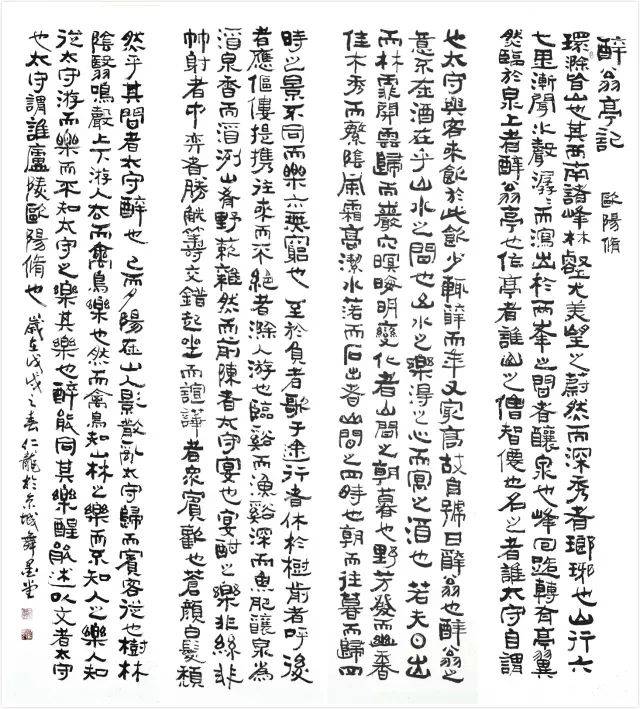 醉翁亭記 歐陽脩
環滁皆山也其西南諸峰林壑尤美望之蔚然而深秀者瑯琊也山行六
七里漸聞水聲潺潺而瀉出於兩峯之間者釀泉也峰回路轉有亭翼
然臨於泉上者醉翁亭也作亭者誰山之僧智僊也名之者誰太守自謂
也太守與客來飲於此飲少輒醉而年又最高故自號曰醉翁也醉翁之
意不在酒在乎山水之間也山水之樂得之心而寓之酒也 若夫日出
而林霏開雲歸而巖穴暝晦明變化者山間之朝暮也野芳發而幽香
佳木秀而繁陰風霜高潔水落而石出者山間之四時也朝而往暮而歸四
時之景不同而樂亦無窮也 至於負者歌于途行者休於樹前者呼後
者應傴僂提攜往來而不絕者滁人游也臨谿而漁谿深而魚肥釀泉為
酒泉香而酒洌山肴野蔌雜然而前陳者太守宴也宴酣之樂非絲非
竹射者中弈者勝觥籌交錯起坐而諠譁者眾賓歡也蒼顏白髮頹
然乎其間者太守醉也 已而夕陽在山人影散亂太守歸而賓客從也樹林
陰翳鳴聲上下游人去而禽鳥樂也然而禽鳥知山林之樂而不知人之樂人知
從太守游而樂而不知太守之樂其樂也醉能同其樂醒能述以文者太守
也太守謂誰廬陵歐陽脩也 歲在戊戌之春仁龍於京城舞墨堂